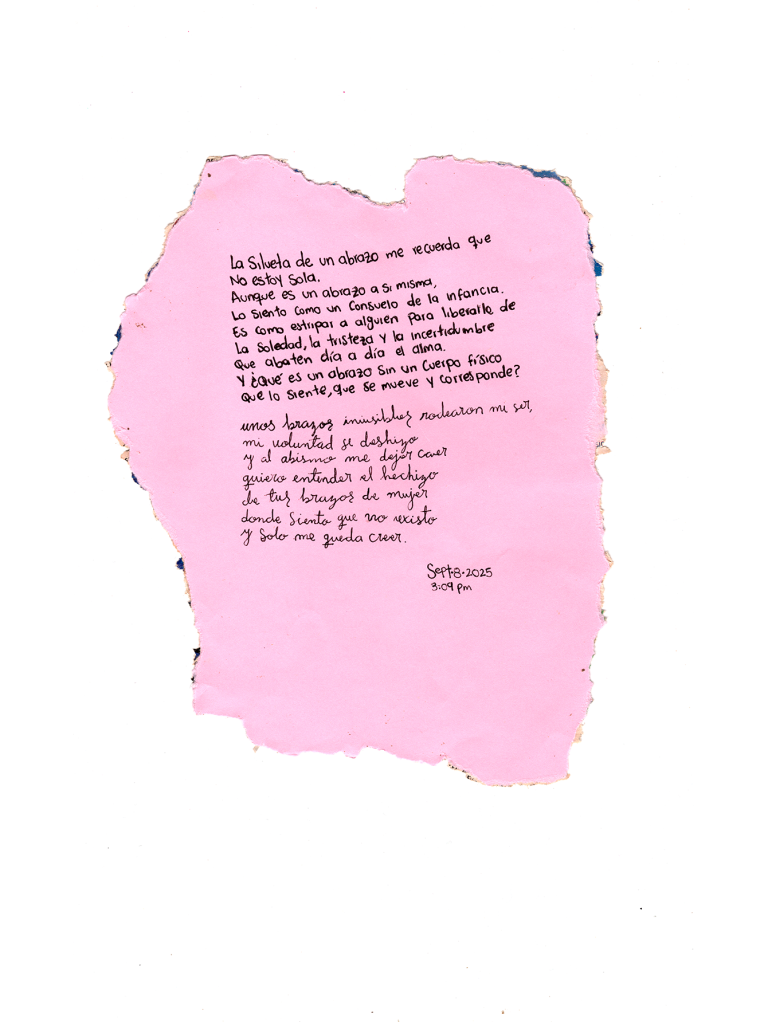 La Silueta de un abrazo me recuerda que
No estoy sola.
Aunque es un abrazo a si misma,
Lo siento como un Consuelo de la infancia.
Es como estripar a alguien para liberarlo de
La Soledad, la tristeza y la incertidumbre
Que abaten día a día el alma.
Y ¿Qué es un abrazo Sin un Cuerpo físico
Que lo siente, que se mueve y corresponde?
unos brazos invisibles rodearon mi ser,
mi voluntad se deshizo
y al abismo me dejé caer
quiero entender el hechizo
de tus brazos de mujer
donde Siento que no existo
y Solo me queda creer.
Sept·8·2025
3:09 pm